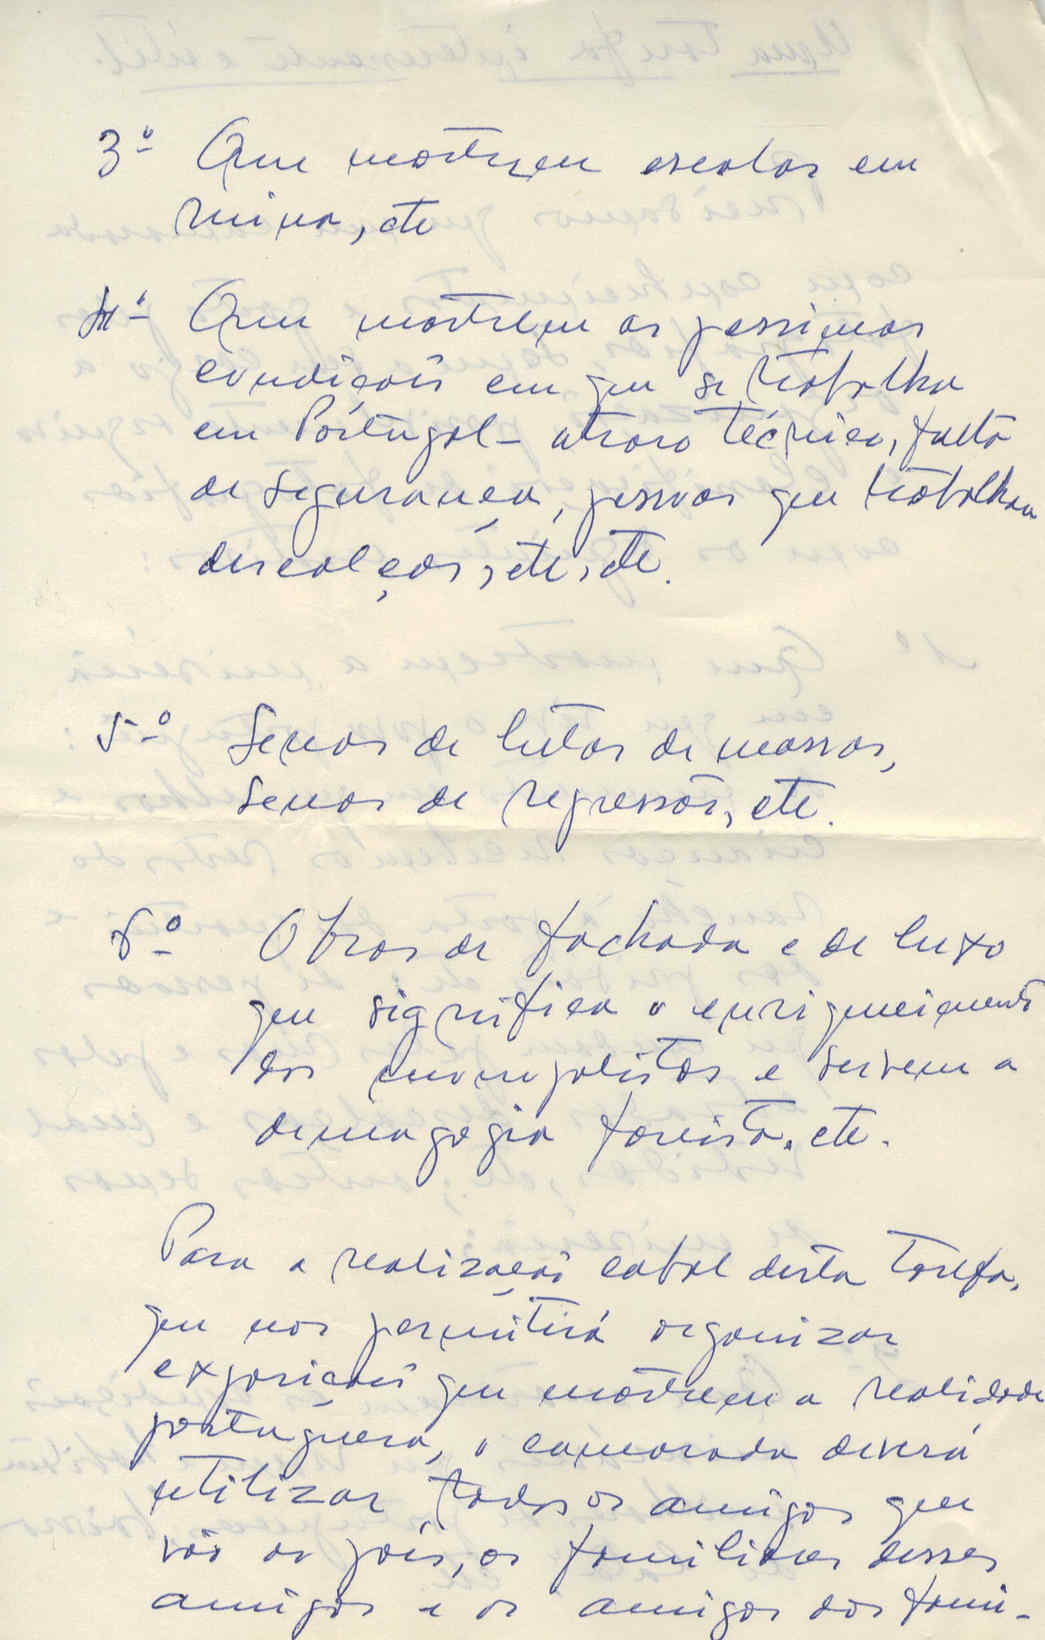 3º Que mostrem escolas em
ruina, etc
4º Que mostrem as pessimas
condições em que se trabalha
em Pórtugal - atraso técnico, falta
de segurança, pessoas que trabalham
descalças, etc, etc.
5º Senas de lutas de massas,
senas de repressão, etc.
6º Obras de fachada e de luxo
que significa o enriquecimento
dos monopolistas e servem a
demagogia facista, etc.
Para a realização cabal desta tarefa,
que nos permitirá organizar
exposições que mostrem a realidade
portuguesa, o camarada deverá
utilizar todos os amigos que
vão ao país, os familiares desses
amigos e os amigos dos fami-